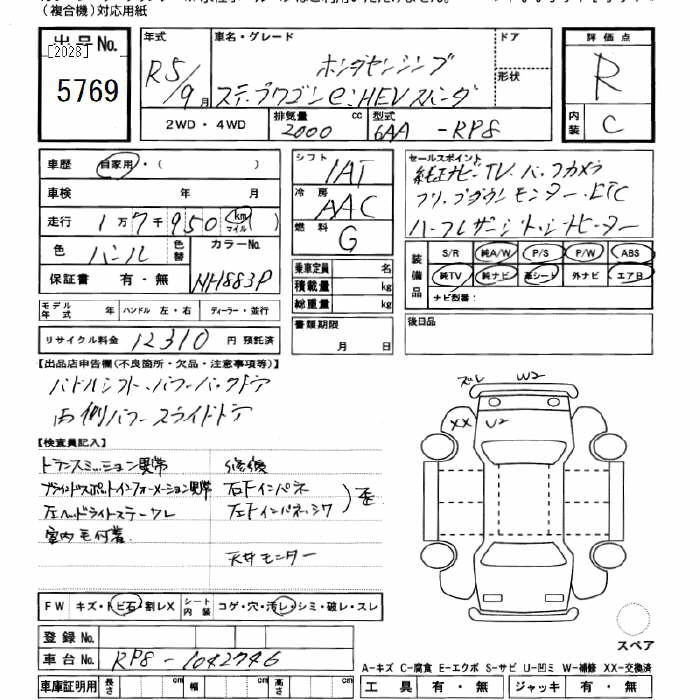 (複合機)対応用紙
出品No. 年式 車名・グレード ドア 評価点
[2028] ホンダセンシング
5769 R5/9月 ステップワゴン e:HEV スパーダ 形状 R
2WD・4WD 排気量 2000 cc 型式 6AA -RP8 内装 C
車歴 自家用・( )
車検 年 月
走行 1万7千950 km マイル ( )
色 パール 色替 カラーNo. NH883P
保証書 有・無
モデル年式 年 ハンドル 左・右 ディーラー・並行
リサイクル料金 12310 円 預託済
シフト IAT
冷房 AAC
燃料 G
乗車定員 名
積載量 kg
総重量 kg
書類期限
月 日
セールスポイント
純正ナビTV・バックカメラ
フリップダウンモニター・ETC
ハーフレザーシート・シートヒーター
装備品 S/R 純A/W P/S P/W ABS
純TV 純ナビ 革シート 外ナビ エアB
ナビ型番:
後日品
【出品店申告欄(不良箇所・欠品・注意事項等)】
パドルシフト、パワーバックドア
両側パワースライドドア
【検査員記入】
トランスミッション異常 修復
ブラインドスポットインフォメーション異常 右Fインパネ
左ヘッドライトステークレ 左Fインパネ、シワ 歪
室内毛付着
天井モニター
ズレ W2
XX U2
FW キズ・トビ石・割レX シート内装 コゲ・穴・汚レ・シミ・破レ・スレ
登録No.
車台No. RP8-1042746
車庫証明用 長さ cm 幅 cm 高さ cm
スペア
A-キズ C-腐食 E-エクボ S-サビ U-凹ミ W-補修 XX-交換済
工具 有・無 ジャッキ 有・無